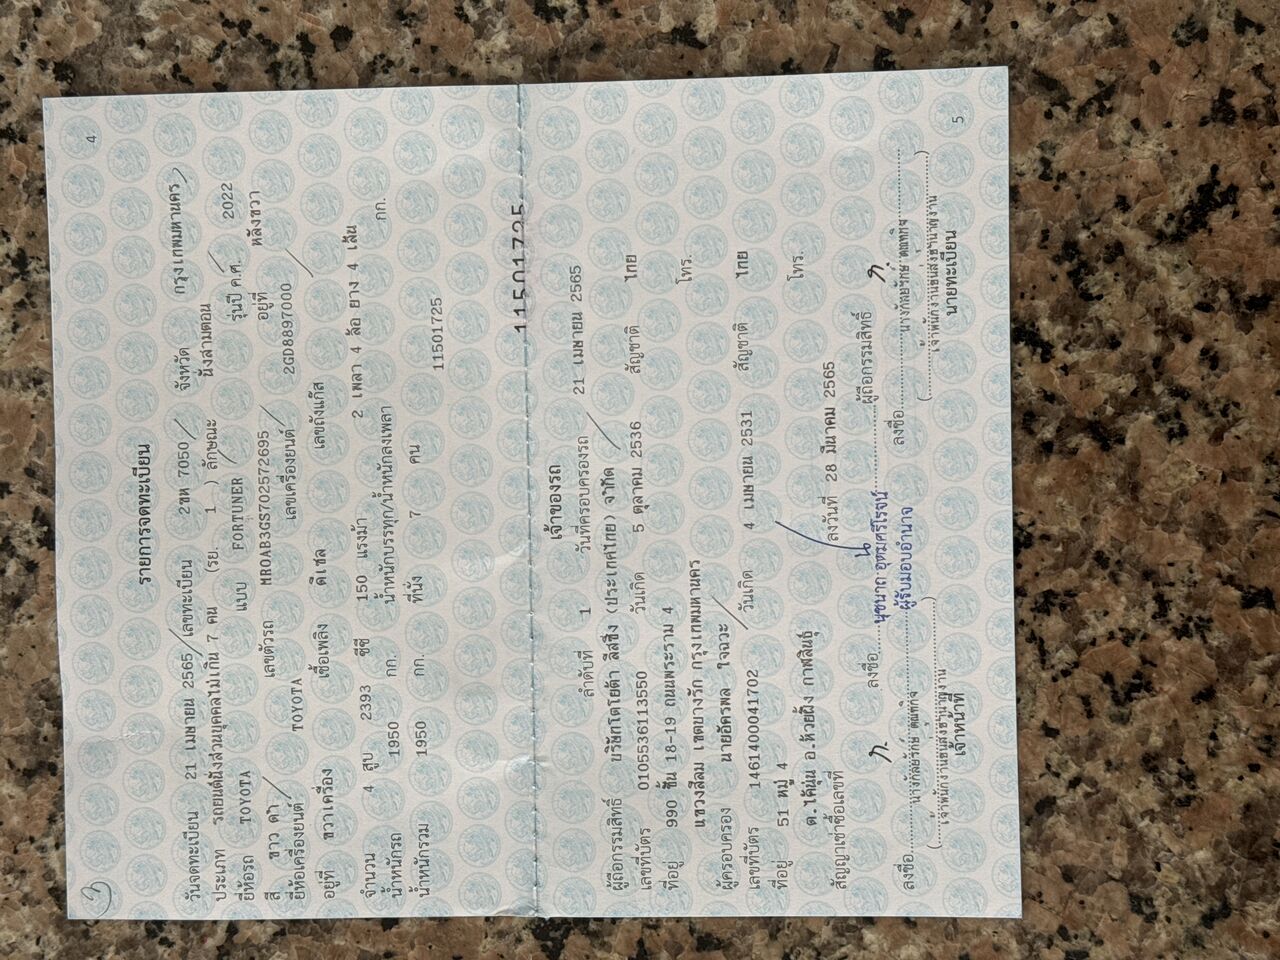 3
4
รายการจดทะเบียน
วันจดทะเบียน 21 เมษายน 2565 เลขทะเบียน 2ขห 7050 จังหวัด กรุงเทพมหานคร
ประเภท รถยนต์นั่งส่วนบุคคลไม่เกิน 7 คน (รย. 1 ) ลักษณะ นั่งสามตอน
ยี่ห้อรถ TOYOTA แบบ FORTUNER รุ่นปี ค.ศ. 2022
สี ขาว ดำ เลขตัวรถ MR0AB3GS702572695 อยู่ที่ หลังขวา
ยี่ห้อเครื่องยนต์ TOYOTA เลขเครื่องยนต์ 2GD8897000
อยู่ที่ ขวาเครื่อง เชื้อเพลิง ดีเซล เลขถังแก๊ส
จำนวน 4 สูบ 2393 ซีซี 150 แรงม้า 2 เพลา 4 ล้อ ยาง 4 เส้น
น้ำหนักรถ 1950 กก. น้ำหนักบรรทุก/น้ำหนักลงเพลา กก.
น้ำหนักรวม 1950 กก. ที่นั่ง 7 คน 11501725
11501725
เจ้าของรถ
ลำดับที่ 1 วันที่ครอบครองรถ 21 เมษายน 2565
ผู้ถือกรรมสิทธิ์ บริษัทโตโยต้า ลีสซิ่ง (ประเทศไทย) จำกัด
เลขที่บัตร 0105536113550 วันเกิด 5 ตุลาคม 2536 สัญชาติ ไทย
ที่อยู่ 990 ชั้น 18-19 ถนนพระราม 4
แขวงสีลม เขตบางรัก กรุงเทพมหานคร โทร.
ผู้ครอบครอง นายอัครพล ใจฉวะ
เลขที่บัตร 1461400041702 วันเกิด 4 เมษายน 2531 สัญชาติ ไทย
ที่อยู่ 51 หมู่ 4
ต.ไค้นุ่น อ.ห้วยผึ้ง กาฬสินธุ์ โทร.
สัญญาเช่าซื้อเลขที่ ลงวันที่ 28 มีนาคม 2565
ลงชื่อ นุชนาถ อุดมศรีโรจน์ ผู้ถือกรรมสิทธิ์
ผู้รับมอบอำนาจ
ลงชื่อ นางกัลยรักษ์ คณฑกิจ ลงชื่อ นางกัลยรักษ์ คณฑกิจ
( เจ้าพนักงานขนส่งชำนาญงาน ) ( เจ้าพนักงานขนส่งชำนาญงาน )
เจ้าหน้าที่ นายทะเบียน
5